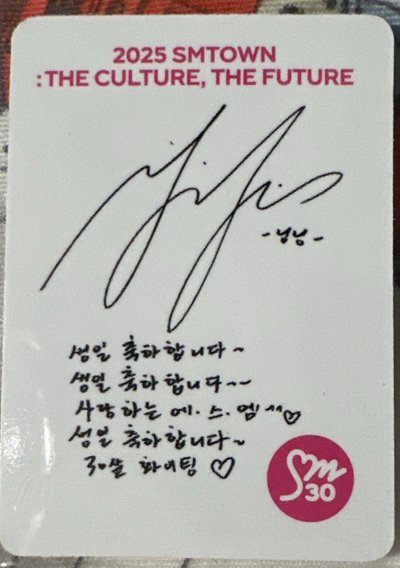 2025 SMTOWN
: THE CULTURE, THE FUTURE
-닝닝-
생일 축하합니다~
생일 축하합니다~~
사랑하는 에.스.엠^^♡
생일 축하합니다~
30살 화이팅 ♡
Sm
30